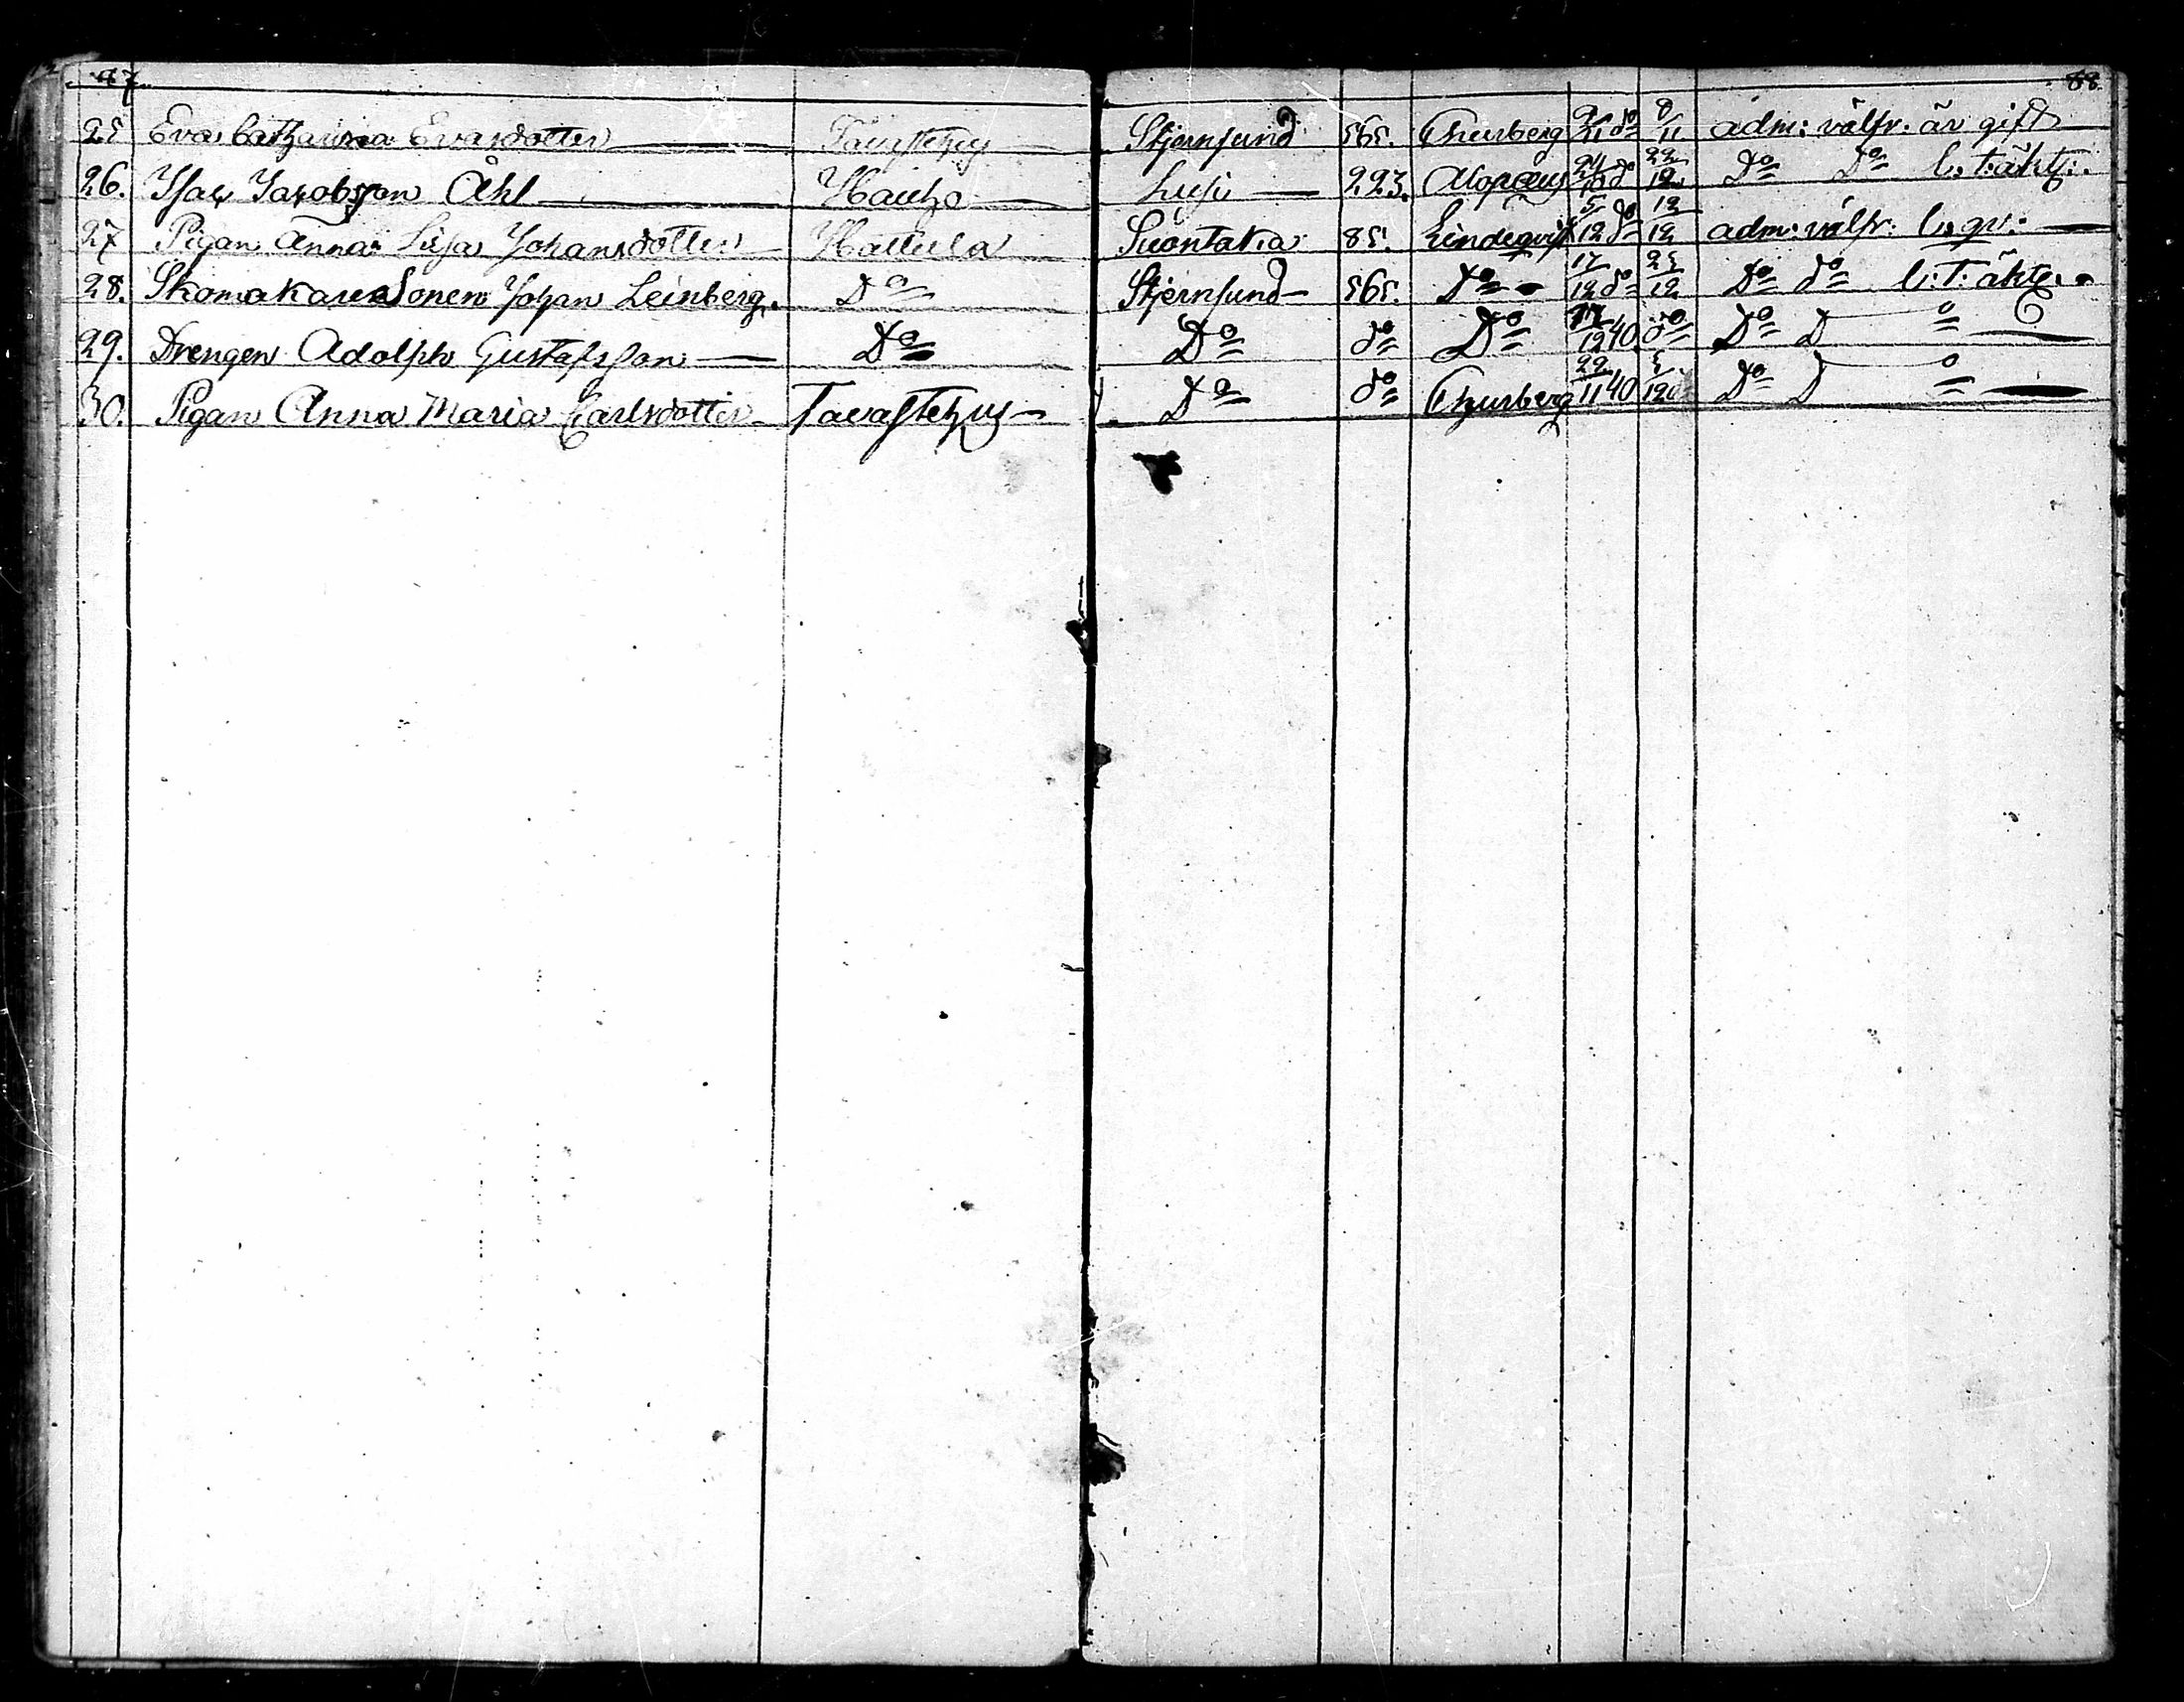 87 88.
25 Eva Catharina Evasdotter Tavastehus Stjernsund 565. Thurberg 9/11 do 8/11 adm: välfr. är gift
26. Isac Jacobsson Åhl Hauho Lusi 223. Alopæus 24/10 do 22/12 Do Do l. t: äkts:
27 Pigan Anna Lisa Johansdotter Hattula Suontaka 85. Lindeqvist 5/12 do 12/12 adm: välfr: l. gv:
28. Skomakare Sonen Johan Leinberg. Do Stjernsund 565. Do 17/12 do 25/12 Do do l: t: äkts.
29. Drengen Adolph Gustafsson Do Do do Do 17/12 40. do Do D o
30. Pigan Anna Maria Carlsdotter Tavastehus Do do Thurberg 29/11 40 5/12 do Do D o